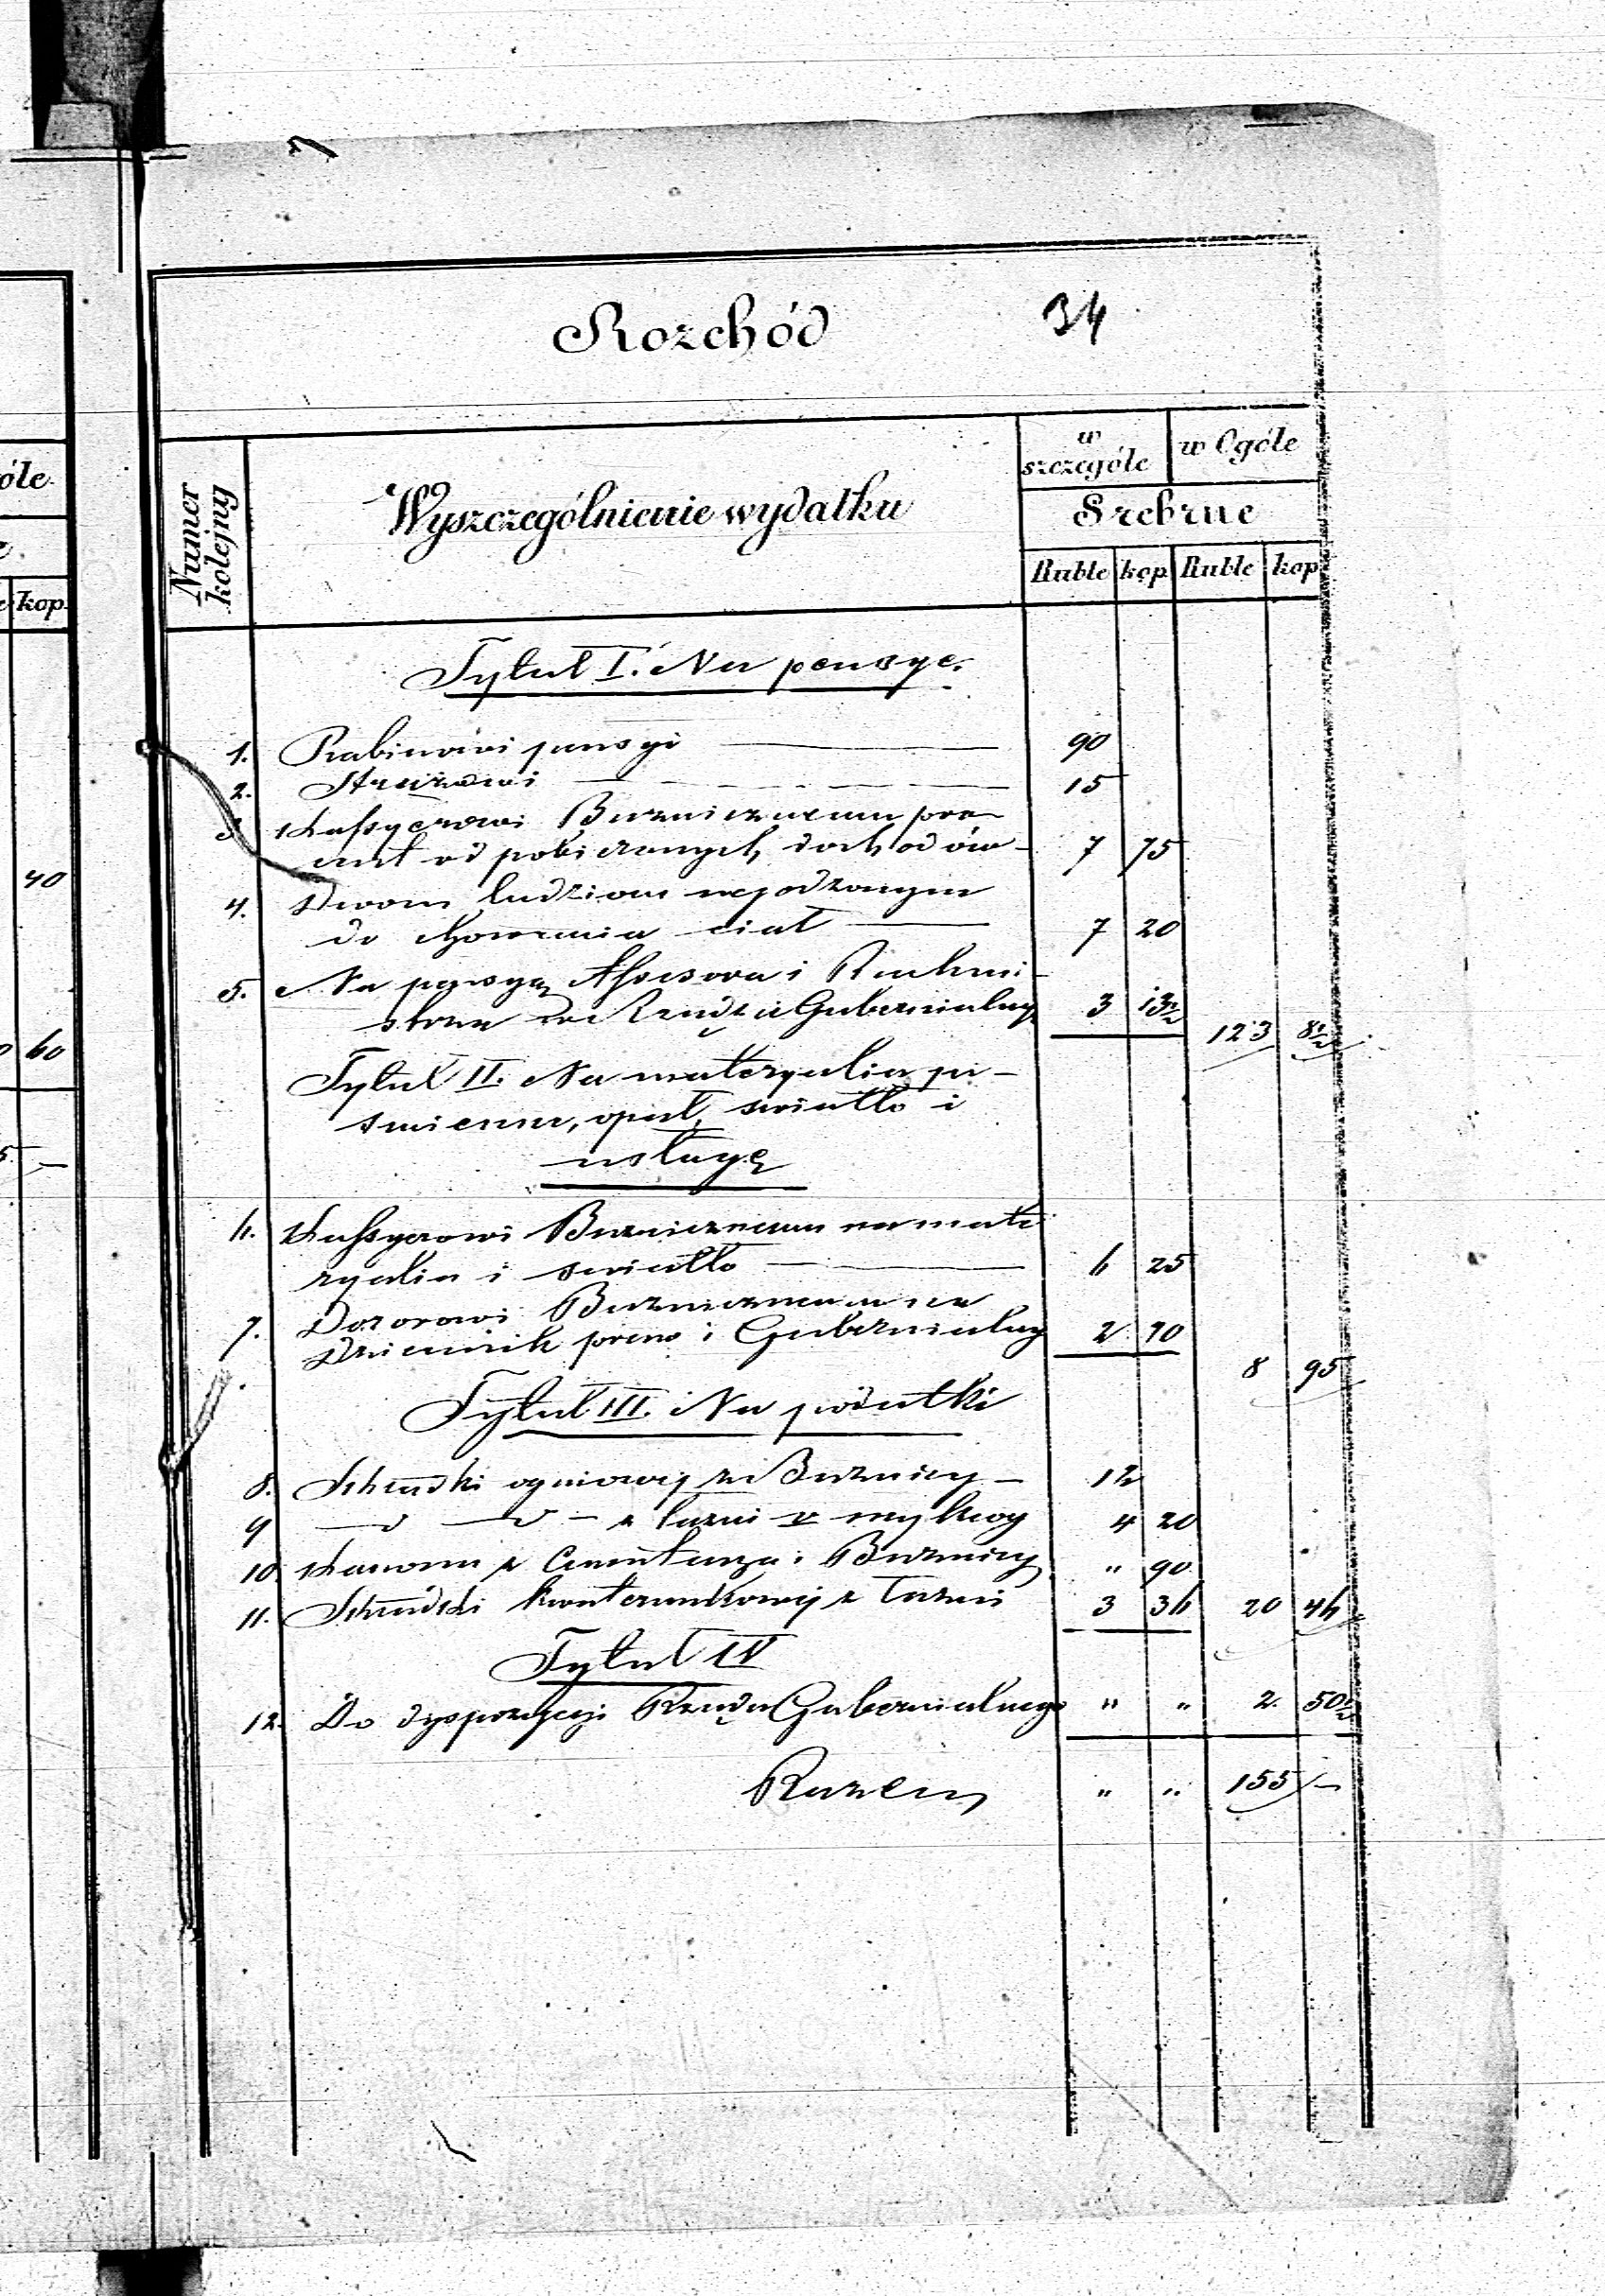 Rozchód 34
óle
kop
40
60
Numer kolejny
Wyszczególnienie wydatku
w szczególe w Ogóle
Srebrne
Ruble kop Ruble kop
Tytuł I. Na pensye.
1. Rabinowi pensyi 90
2. Stróżowi 15
3. Kassyerowi Bużnicznemu pro-
cent od pobieranych dochodów 7 75
4. Dwom ludziom
do chowania ciał 7 20
5. Na pensyą Assesora i Rachmi-
strza w Rządzie Gubernialnym 3 13½ 123 8½
Tytuł II. Na materyalia pi-
smienne, opał, swiatło i
usługę
6. Kassyerowi Bużnicznemu na mate
ryalia i swiatło 6 25
7. Dozorowi Bużnicznemu na
Dziennik praw i Gubernialny 2 70 8 95
Tytuł III. Na podatki
8. Składki ogniowej z Bużnicy 12
9 z łazni 4 20
10. Kanonu z Cmentarza i Bużnicy " 90
11. Składki kwaterunkowej z Łazni 3 36 20 46
Tytuł IV
12. Do dyspozycyi Rządu Gubernialnego " " 2 50½
Razem " " 155 –